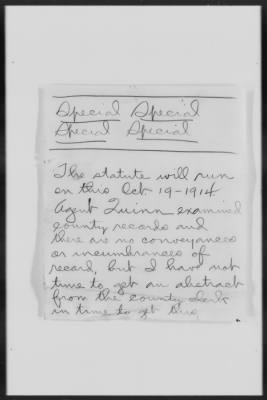 Special Special
Special Special
The statute will run
on this Oct 19-1914
Agent Quinn examined
county records and
there are no conveyances
or incumbrances of
record, but I have not
time to get an abstract
from the county clerk
in time to get this,